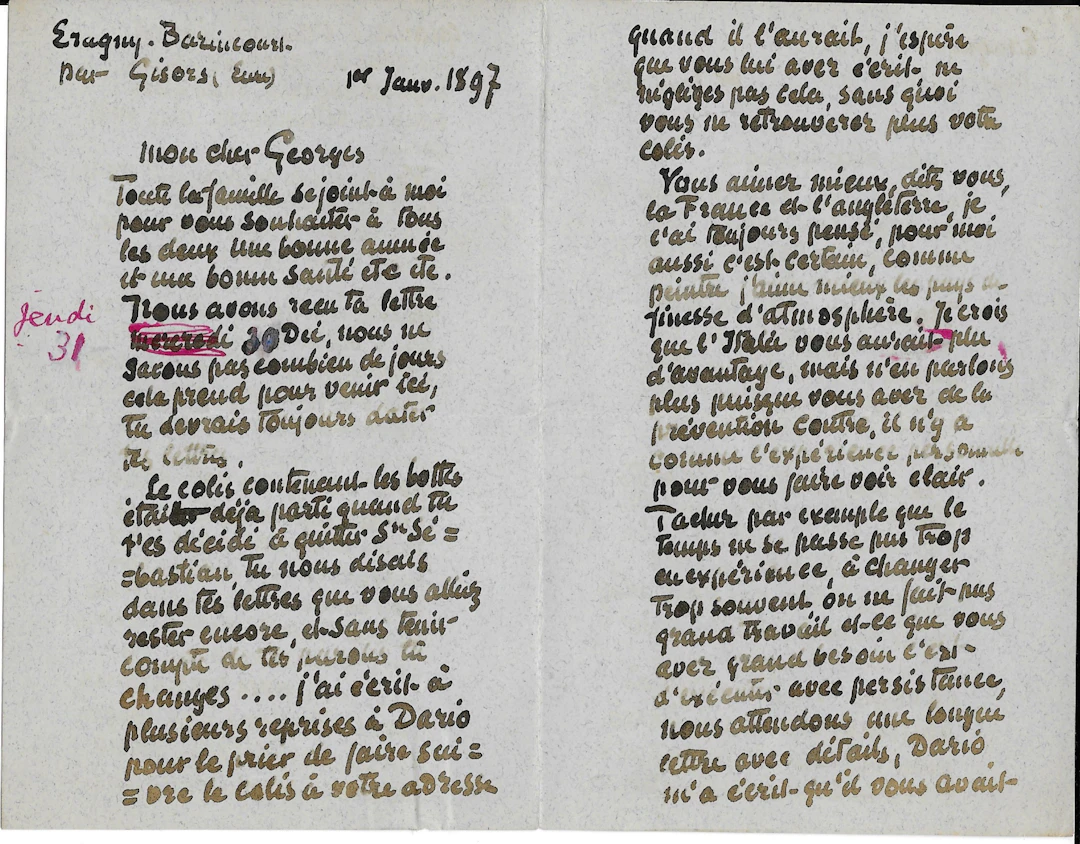 Eragny. Bazincourt.
par Gisors (Eure)
1er Janv. 1897
Mon cher Georges
Toute la famille se joint à moi
pour vous souhaiter à tous
les deux une bonne année
et une bonne santé etc etc.
Nous avons reçu ta lettre
jeudi
31
mercredi 30 Dec, nous ne
savons pas combien de jours
cela prend pour venir ici,
tu devrais toujours dater
tes lettres.
Le colis contenant les bottes
était déjà parti quand tu
t'es décidé à quitter Sn Sé =
=bastian, tu nous disais
dans tes lettres que vous alliez
rester encore, et sans tenir
compte de tes paroles tu
changes .... j'ai écrit à
plusieurs reprises à Dario
pour le prier de faire sui =
= vre le colis à votre adresse
quand il l'aurait, j'espère
que vous lui avez écrit ne
négligez pas cela, sans quoi
vous ne retrouverez plus votre
colis.
Vous aimez mieux, dites vous,
la France et l'angleterre, je
l'ai toujours pensé, pour moi
aussi c'est certain, comme
peintre j'aime mieux les pays de
finesse d'atmosphère. Je crois
que l'Italie vous aurait plu
d'avantage, mais n'en parlons
plus puisque vous avez de la
prévention contre, il n'y a
comme l'expérience personnelle
pour vous faire voir clair.
Tachez par exemple que le
temps ne se passe pas trop
en expérience, à changer
trop souvent on ne fait pas
grand travail et ce que vous
avez grand besoin c'est
d'exécuter avec persistance,
nous attendons une longue
lettre avec détails, Dario
m'a écrit qu'il vous avait